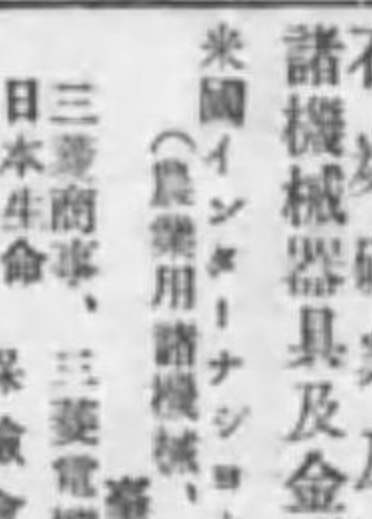 諸機械器具及金
米國インターナショ
（農業用諸機械、
三菱商事、三菱電機
日本生命保險會